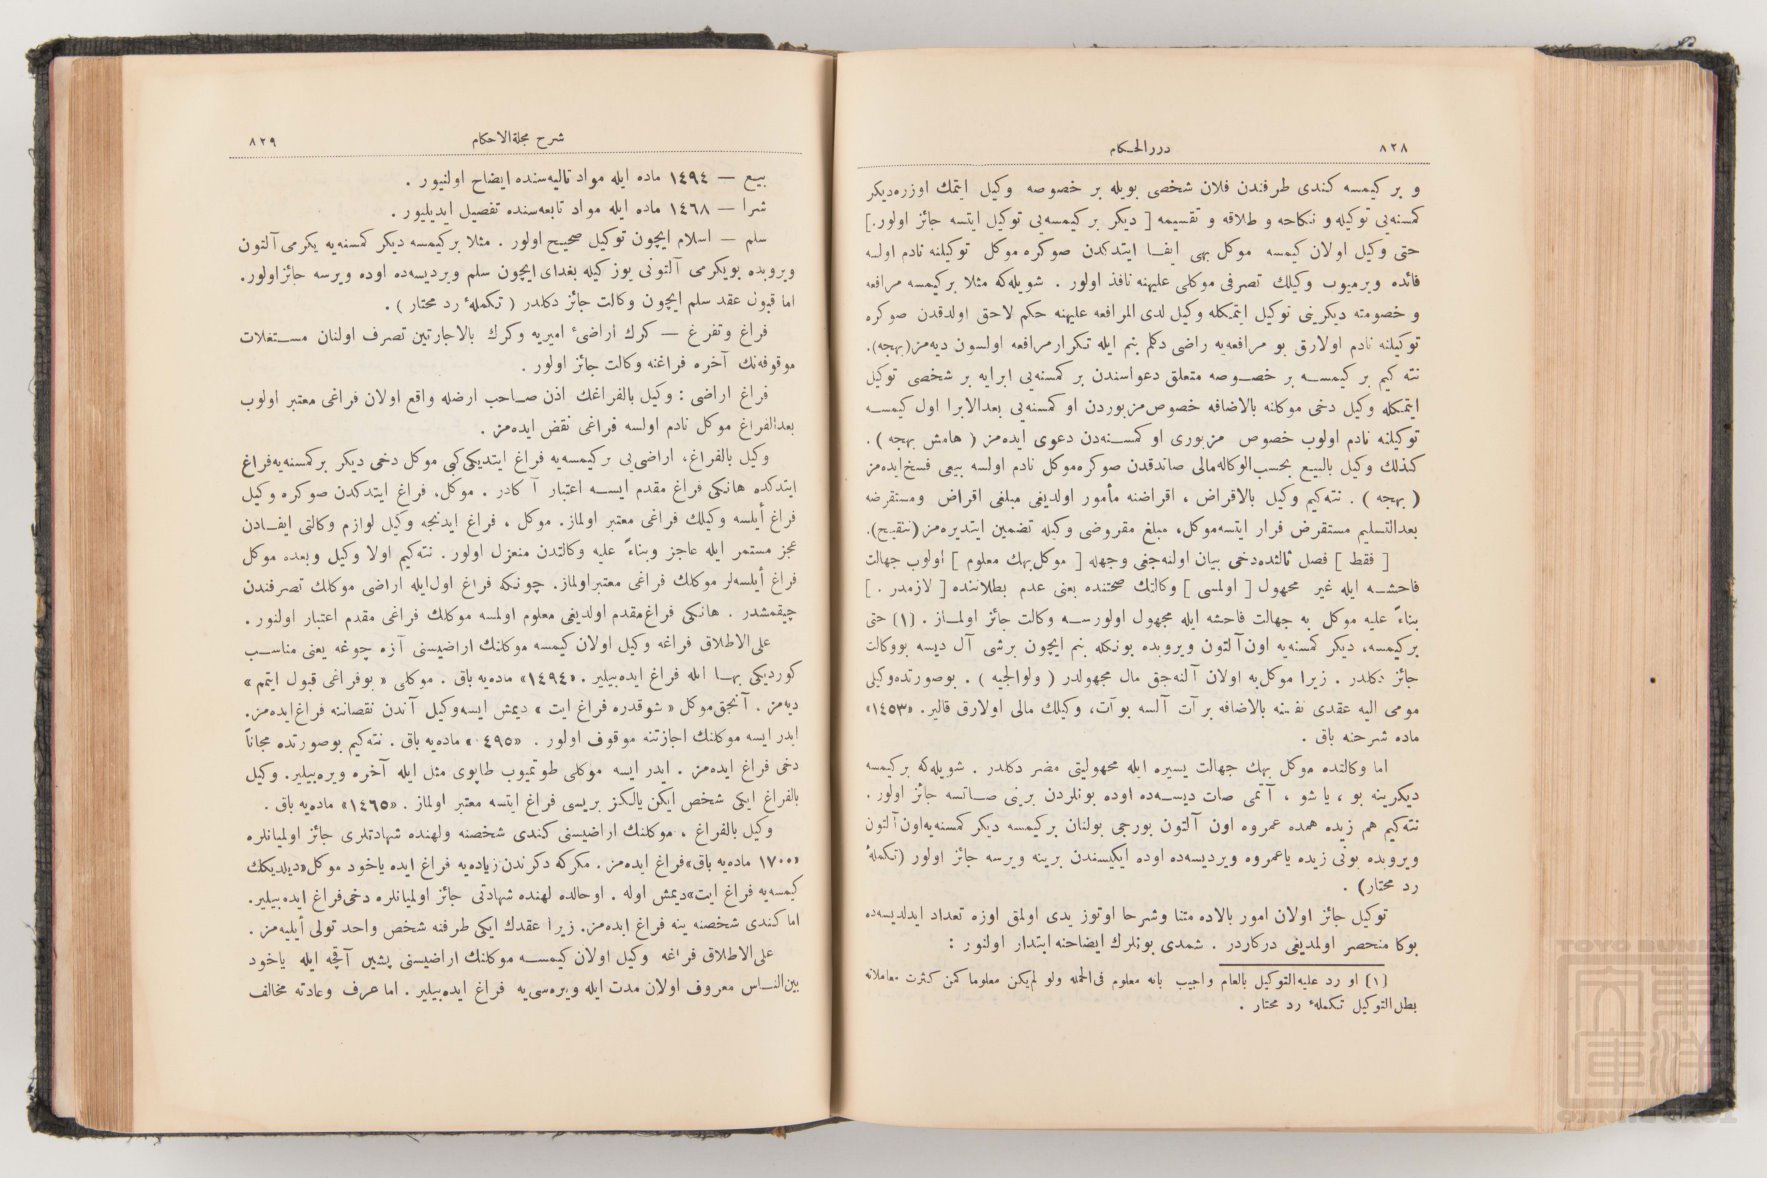 ٨٢٨
دررالحكام
و بر كيمسه كندى طرفندن فلان شخصى بويله بر خصوصه وكيل ايتمك اوزره ديكر
كمسنه‌يى توكيله و نكاحه و طلاقه و تقسيمه [ ديكر بر كيمسه‌يى توكيل ايتسه جائز اولور.]
حتى وكيل اولان كيمسه موكل بهى ايفا ايتدكدن صوكره موكل توكيلنه نادم اولسه
فائده ويرميوب وكيلك تصرفى موكلى عليهنه نافذ اولور . شويله‌كه مثلا بر كيمسه مرافعه
و خصومته ديكرينى توكيل ايتمكله وكيل لدى المرافعه عليهنه حكم لاحق اولدقدن صوكره
توكيلنه نادم اولارق بو مرافعه‌يه راضى دكلم بنم ايله تكرار مرافعه اولسون ديه‌مز (بهجه).
نته كيم بر كيمسه بر خصوصه متعلق دعواسندن بر كمسنه‌يى ابرايه بر شخصى توكيل
ايتمكله وكيل دخى موكلنه بالاضافه خصوص مزبوردن او كمسنه‌يى بعدالابرا اول كيمسه
توكيلنه نادم اولوب خصوص مزبورى او كمسنه‌دن دعوى ايده‌مز ( هامش بهجه ) .
كذلك وكيل بالبيع بحسب‌الوكاله مالى صاتدقدن صوكره موكل نادم اولسه بيعى فسخ ايده‌مز
( بهجه ) . نته‌كيم وكيل بالاقراض ، اقراضنه مأمور اولديغى مبلغى اقراض ومستقرضه
بعدالتسليم مستقرض فرار ايتسه موكل، مبلغ مقروضى وكيله تضمين ايتديره‌مز (تنقيح).
[ فقط ] فصل ثالثده‌دخى بيان اولنه‌جغى وجهله [ موكل بهك معلوم ] اولوب جهالت
فاحشه ايله غير مجهول [ اولمسى ] وكالتك صحتنده يعنى عدم بطلاننده [ لازمدر . ]
بناءً عليه موكل به جهالت فاحشه ايله مجهول اولورسه وكالت جائز اولماز . (١) حتى
بركيمسه، ديكر كمسنه‌يه اون آلتون ويروبده بونكله بنم ايچون برشى آل ديسه بووكالت
جائز دكلدر . زيرا موكل‌به اولان آلنه‌جق مال مجهولدر ( ولوالجيه ) . بوصورتده‌وكيلى
مومى اليه عقدى نفسنه بالاضافه بر آت آلسه بو آت، وكيلك مالى اولارق قالير. «١٤٥٣»
ماده شرحنه باق .
اما وكالتده موكل بهك جهالت يسيره ايله مجهوليتى مضر دكلدر . شويله‌كه بركيمسه
ديكرينه بو ، يا شو ، آتمى صات ديسه‌ده اوده بونلردن برينى صاتسه جائز اولور .
نته‌كيم هم زيده همده عمروه اون آلتون بورجى بولنان بركيمسه ديكر كمسنه‌يه‌اون آلتون
ويروبده بونى زيده ياعمروه ويرديسه‌ده اوده ايكيسندن برينه ويرسه جائز اولور (تكملهٔ
رد محتار) .
توكيل جائز اولان امور بالاده متنا وشرحا اوتوز يدى اولمق اوزه تعداد ايدلديسه‌ده
بوكا منحصر اولمديغى دركاردر . شمدى بونلرك ايضاحنه ابتدار اولنور :
(١) او رد عليه‌التوكيل بالعام واجيب بانه معلوم فى‌الجمله ولو لم‌يكن معلوما كمن كثرت معاملاته
بطل‌التوكيل تكملهٔ رد محتار .
شرح مجلةالاحكام
٨٢٩
بيع — ١٤٩٤ ماده ايله مواد تاليه‌سنده ايضاح اولنيور .
شرا — ١٤٦٨ ماده ايله مواد تابعه‌سنده تفصيل ايديليور .
سلم — اسلام ايچون توكيل صحيح اولور . مثلا بركيمسه ديكر كمسنه‌يه يكرمى آلتون
ويروبده بويكرمى آلتونى يوز كيله بغداى ايچون سلم ويرديسه‌ده اوده ويرسه جائزاولور.
اما قبول عقد سلم ايچون وكالت جائز دكلدر ( تكملهٔ رد محتار ) .
فراغ وتفرغ — كرك اراضىٔ اميريه وكرك بالاجارتين تصرف اولنان مستغلات
موقوفه‌نك آخره فراغنه وكالت جائز اولور .
فراغ اراضى : وكيل بالفراغك اذن صاحب ارضله واقع اولان فراغى معتبر اولوب
بعدالفراغ موكل نادم اولسه فراغى نقض ايده‌مز .
وكيل بالفراغ، اراضى‌يى بركيمسه‌يه فراغ ايتديكى كبى موكل دخى ديكر بركمسنه‌يه‌فراغ
ايتدكده هانكى فراغ مقدم ايسه اعتبار آ كادر . موكل، فراغ ايتدكدن صوكره وكيل
فراغ أيلسه وكيلك فراغى معتبر اولماز. موكل ، فراغ ايدنجه وكيل لوازم وكالتى ايفادن
عجز مستمر ايله عاجز وبناءً عليه وكالتدن منعزل اولور. نته‌كيم اولا وكيل وبعده موكل
فراغ أيلسه‌لر موكلك فراغى معتبراولماز. چونكه فراغ اول‌ايله اراضى موكلك تصرفندن
چيقمشدر . هانكى فراغ‌مقدم اولديغى معلوم اولمسه موكلك فراغى مقدم اعتبار اولنور .
على‌الاطلاق فراغه وكيل اولان كيمسه موكلنك اراضيسنى آزه چوغه يعنى مناسب
كورديكى بها ايله فراغ ايده‌بيلير . «١٤٩٤» ماده‌يه باق . موكلى « بوفراغى قبول ايتمم »
ديه‌مز . آنجق‌موكل « شوقدره فراغ ايت » ديمش ايسه‌وكيل آندن نقصاننه فراغ‌ايده‌مز.
ايدر ايسه موكلنك اجازتنه موقوف اولور . ماده‌يه باق . نته‌كيم بوصورتده مجاناً
دخى فراغ ايده‌مز . ايدر ايسه موكلى طوتميوب طاپوى مثل ايله آخره ويره‌بيلير. وكيل
بالفراغ ايكى شخص ايكن يالكز بريسى فراغ ايتسه معتبر اولماز . «١٤٦٥» ماده‌يه باق .
وكيل بالفراغ ، موكلنك اراضيسنى كندى شخصنه ولهنده شهادتلرى جائز اولميانلره
«١٧٠٠ ماده‌يه باق»فراغ ايده‌مز . مكركه دكرندن زياده‌يه فراغ ايده ياخود موكل«ديلديكك
كيمسه‌يه فراغ ايت»ديمش اوله . اوحالده لهنده شهادتى جائز اولميانلره دخى‌فراغ ايده‌بيلير.
اما كندى شخصنه ينه فراغ ايده‌مز. زيرا عقدك ايكى طرفنه شخص واحد تولى أيليه‌مز .
على‌الاطلاق فراغه وكيل اولان كيمسه موكلنك اراضيسنى پشين آقچه ايله ياخود
بين‌الناس معروف اولان مدت ايله ويره‌سى‌يه فراغ ايده‌بيلير . اما عرف وعادته مخالف